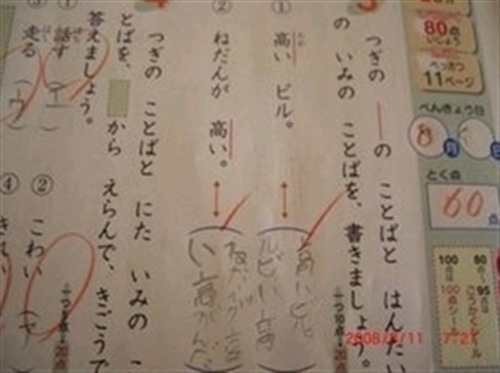 3 つぎの ――の ことばと はんたい
の いみの ことばを、書きましょう。
一つ10点 20点
① 高い ビル。
高いビル。
ルビい高
② ねだんが 高い。
4 つぎの ことばと にた いみの こ
とばを、 から えらんで、きごうで
答えましょう。
一つ5点 20点
話す
(エ)
② こわい
(ヤ)
③ 走る
(ウ)
④
80点
いじょう
べっさつ
11ページ
べんきょう日
8月 日
とく点
60点
100点は 100点シール
80点〜95点は ごうかくシール
2008/5/11 7:27